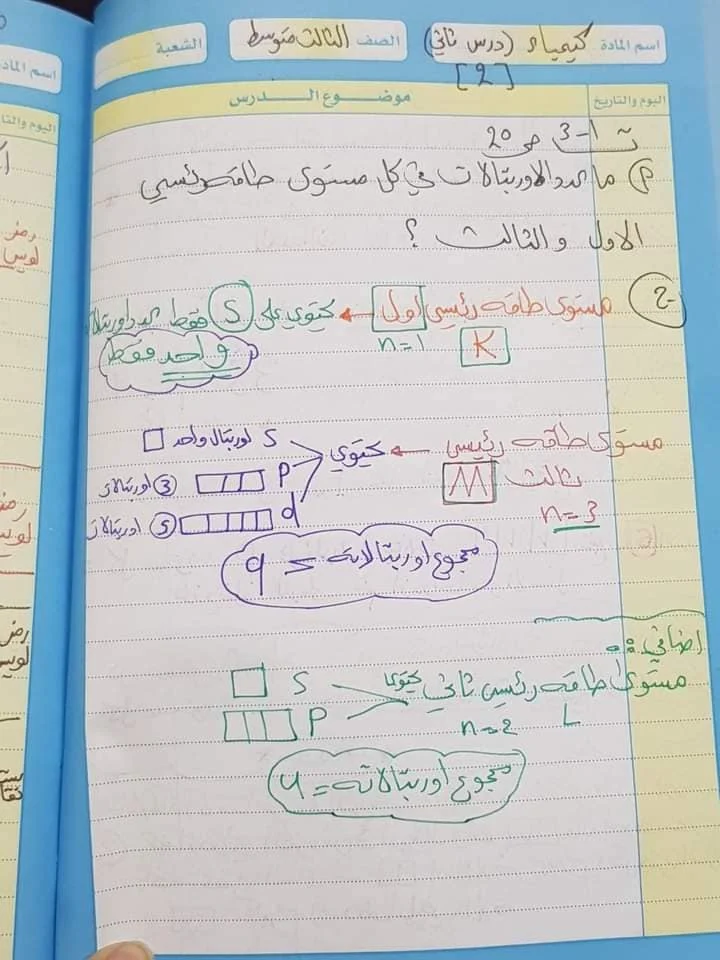 اسم المادة كيمياء (درس ثاني) الصف الثالث متوسط الشعبة
[2]
اليوم والتاريخ موضوع الدرس
ت 1-3 ص 20
P) ما عدد الاوربتالات في كل مستوى طاقة رئيسي
الاول والثالث ؟
ج- مستوى طاقه رئيسي اول ← يحتوي على S فقط عدد اوربتالا
n=1 K واحد فقط
مستوى طاقه رئيسي ← يحتوي S اوربتال واحد
ثالث M P 3 اوربتالات
n=3 d 5 اوربتالات
مجموع اوربتالاته = 9
اضافي :
مستوى طاقه رئيسي ثاني يحتوي S
L n=2 P
مجموع اوربتالاته = 4
اسم الماد
اليوم والتا
رمز
لويس